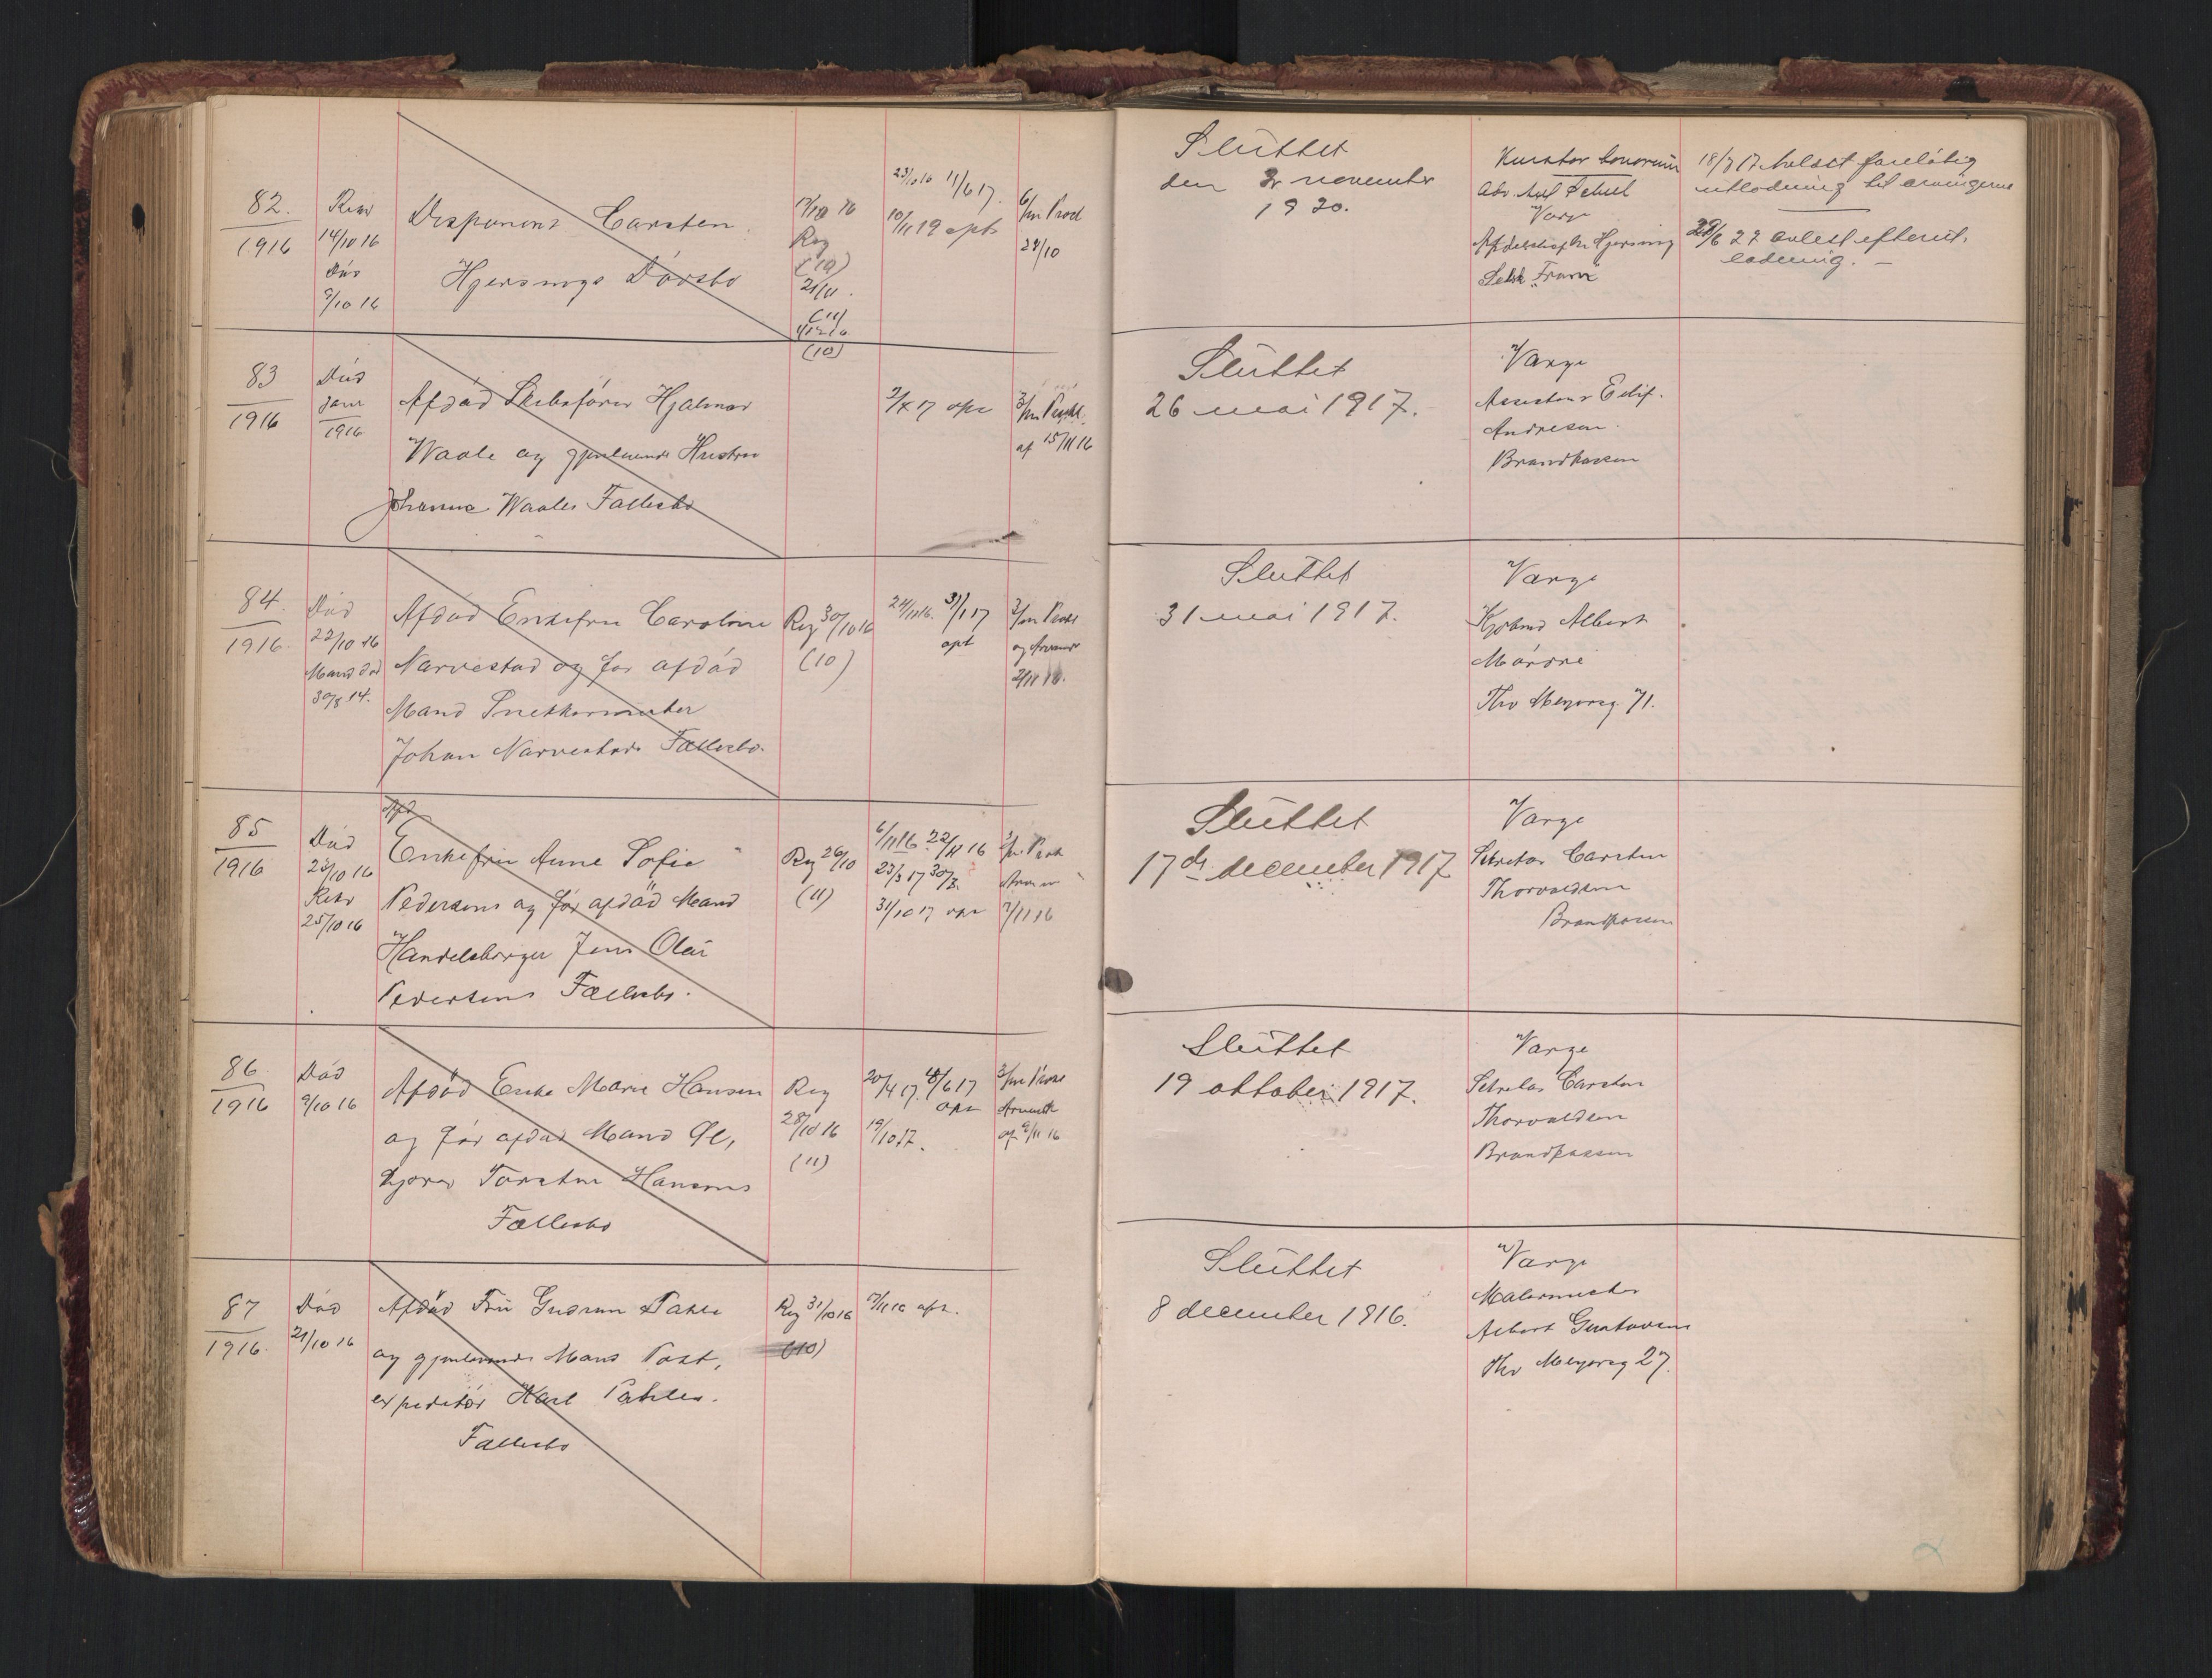 82.
1916
14/10 16
Død
9/10 16
Disponent Carsten
Hjersings Dødsbo
17/10 16
Reg
(10)
21/11
(11)
(10)
23/10 16 11/6 17.
10/11 19 opt
24/10
Sluttet
den 2 november
1920.
Kurator bonorum
Adv Axel
Værge
Hjersing
18/7 17 avlest foreløbig
utlodning til arvingerne
22 avlest efterut-
lodning. —
83
1916
Død
Janr
1916
Afdød Skibsfører Hjalmar
Waale og gjenlevende Hustru
Johanne Waales Fællesbo
opr
af 15/11 16
Sluttet
26 mai 1917.
Værge
Assistent
Andresen
Brandkassen
84.
1916.
Død
22/10 16
Mand død
30/8 14.
Afdød Enkefru Caroline
Narvestad og før afdød
Mand Snekkermester
Johan Narvestads Fællesbo.
Reg 30/10 16
(10)
24/11 16. 31/1 17
opt
2/11 16.
Sluttet
31 mai 1917.
Værge
Kjøbmd Albert
Thv Meyersg. 71.
85
1916
Død
25/10 16
Afd
Enkefru Anne Sofie
Pedersens og før afdød Mand
Handelsborger Jens Olai
Pedersens Fællesbo.
Reg 26/10
(11)
6/11 16 22/11 16
23/3 17
31/10 17 opr
7/11 16
Sluttet
17de december 1917
Værge
Sekretær Carsten
Thorvaldsen
Brandkassen
86
1916
Død
9/10 16
Afdød Enke Marie Hansen
og før afdød Mand Øl-
kjører Torsten Hansens
Fællesbo
Reg
28/10 16
(11)
20/4 17. 18/6 17
opr
19/10 17.
af 9/11 16
Sluttet
19 oktober 1917.
Værge
Sekretær Carsten
Thorvaldsen
Brandkassen
87
1916.
Død
21/10 16
Afdød Fru Gudrun Pahle
og gjenlevende Mand Post-
expeditør Karl Pahles.
Fællesbo
Reg 31/10 16
(10)
opr.
Sluttet
8 december 1916.
Værge
Malermester
Albert Gustavsen
Thv Meyersg 27.